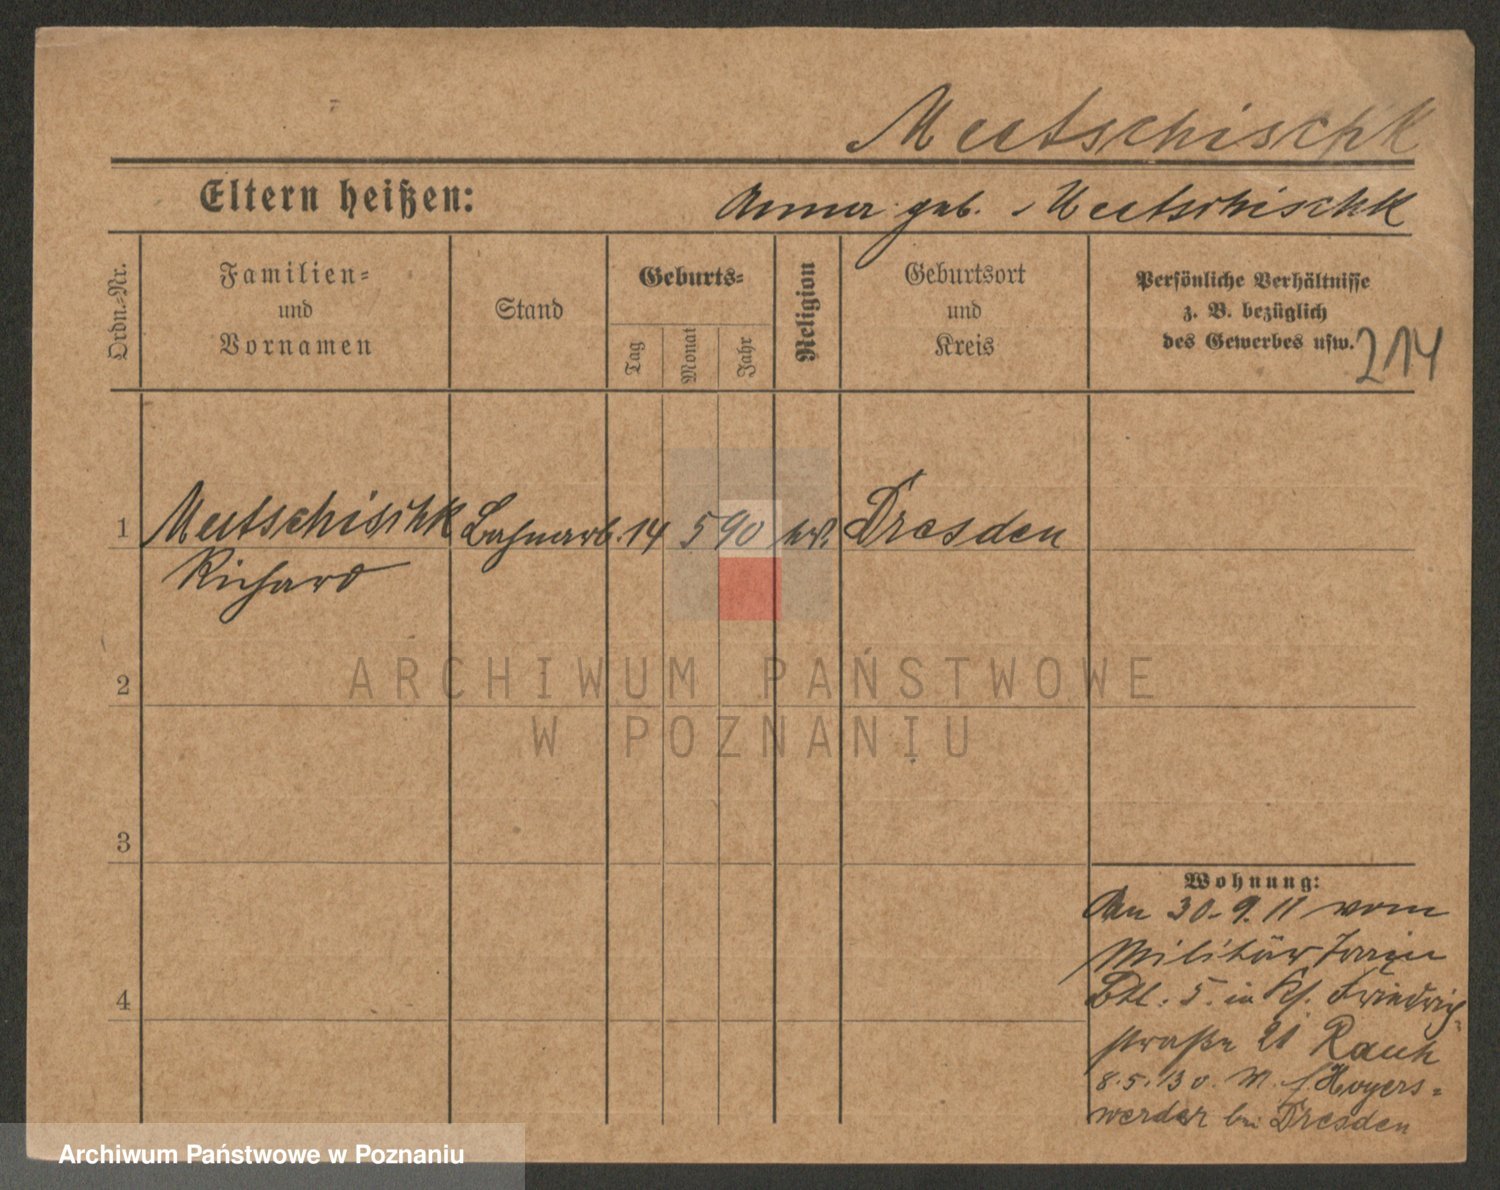 Meutschischk
Eltern heißen:
Anna geb. Meutschischk
Ordn.=Nr.
Familien=
und
Vornamen
Stand
Geburts=
Tag
Monat
Jahr
Religion
Geburtsort
und
Kreis
Persönliche Verhältnisse
z. B. bezüglich
des Gewerbes usw.
214
1 Meutschischk Bahnarb. 14 5 90 Dresden
Richard
2
3
4
Wohnung:
An 30.9.11 vom
Militär Train
Btl. 5. in Friedrich=
straße 21 Rauh
8.5.13 v. M. Hoyers=
werder bei Dresden
ARCHIWUM PAŃSTWOWE
W POZNANIU
Archiwum Państwowe w Poznaniu